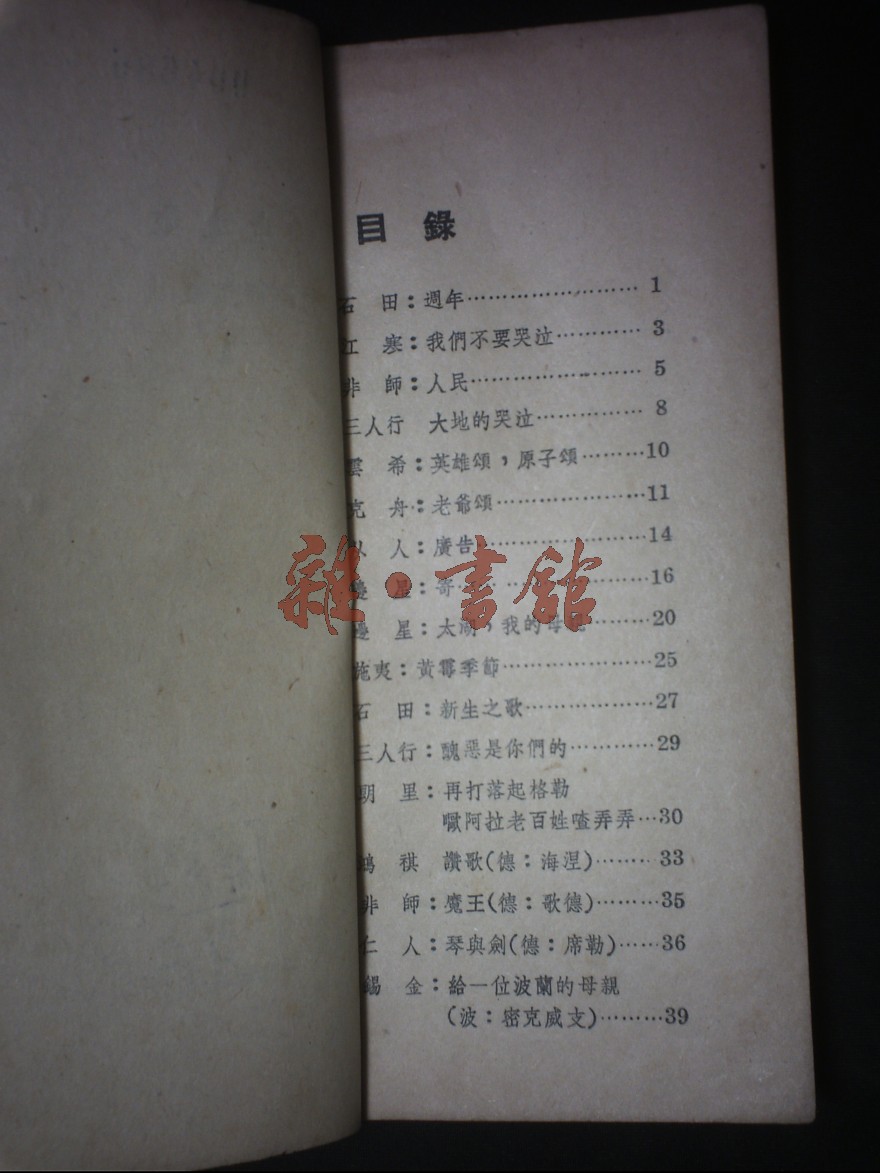 目錄
石 田：週年…………………… 1
江 寒：我們不要哭泣………… 3
非 師：人民…………………… 5
三人行 大地的哭泣…………… 8
雲 希：英雄頌，原子頌………10
克 舟：老爺頌…………………11
人：廣告……………………14
邊 星：寄………………………16
邊 星：太湖，我的母親………20
施夷：黃霉季節…………………25
石 田：新生之歌………………27
三人行：醜惡是你們的…………29
朗 里：再打落起格勒
噉阿拉老百姓喳弄弄…30
鴻 祺 讚歌(德：海涅)………33
非 師：魔王(德：歌德)………35
仁 人：琴與劍(德：席勒)……36
錫 金：給一位波蘭的母親
(波：密克威支)………39
雜·書館